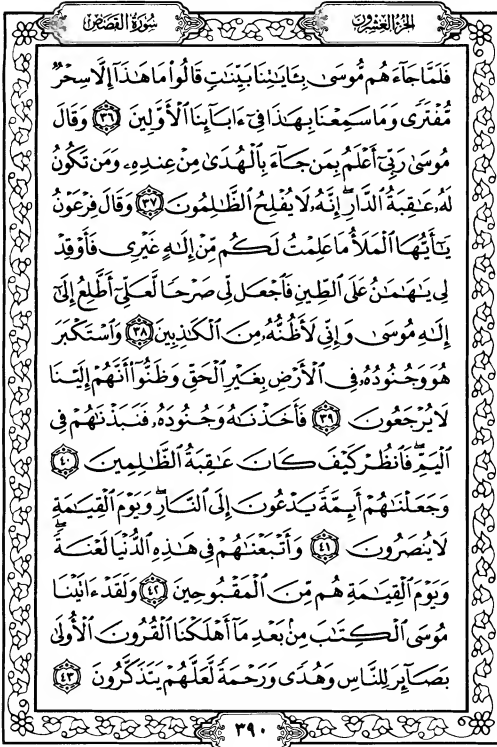 سُورَةُ القَصَصِ
الجُزءُ العِشرُونَ
فَلَمَّا جَآءَهُم مُّوسَىٰ بِـَٔايَٰتِنَا بَيِّنَٰتٍ قَالُوا۟ مَا هَٰذَآ إِلَّا سِحْرٌ
مُّفْتَرًى وَمَا سَمِعْنَا بِهَٰذَا فِىٓ ءَابَآئِنَا ٱلْأَوَّلِينَ ٣٦ وَقَالَ
مُوسَىٰ رَبِّىٓ أَعْلَمُ بِمَن جَآءَ بِٱلْهُدَىٰ مِنْ عِندِهِۦ وَمَن تَكُونُ
لَهُۥ عَٰقِبَةُ ٱلدَّارِ ۖ إِنَّهُۥ لَا يُفْلِحُ ٱلظَّٰلِمُونَ ٣٧ وَقَالَ فِرْعَوْنُ
يَٰٓأَيُّهَا ٱلْمَلَأُ مَا عَلِمْتُ لَكُم مِّنْ إِلَٰهٍ غَيْرِى فَأَوْقِدْ
لِى يَٰهَٰمَٰنُ عَلَى ٱلطِّينِ فَٱجْعَل لِّى صَرْحًا لَّعَلِّىٓ أَطَّلِعُ إِلَىٰٓ
إِلَٰهِ مُوسَىٰ وَإِنِّى لَأَظُنُّهُۥ مِنَ ٱلْكَٰذِبِينَ ٣٨ وَٱسْتَكْبَرَ
هُوَ وَجُنُودُهُۥ فِى ٱلْأَرْضِ بِغَيْرِ ٱلْحَقِّ وَظَنُّوٓا۟ أَنَّهُمْ إِلَيْنَا
لَا يُرْجَعُونَ ٣٩ فَأَخَذْنَٰهُ وَجُنُودَهُۥ فَنَبَذْنَٰهُمْ فِى
ٱلْيَمِّ ۖ فَٱنظُرْ كَيْفَ كَانَ عَٰقِبَةُ ٱلظَّٰلِمِينَ ٤٠
وَجَعَلْنَٰهُمْ أَئِمَّةً يَدْعُونَ إِلَى ٱلنَّارِ ۖ وَيَوْمَ ٱلْقِيَٰمَةِ
لَا يُنصَرُونَ ٤١ وَأَتْبَعْنَٰهُمْ فِى هَٰذِهِ ٱلدُّنْيَا لَعْنَةً ۖ
وَيَوْمَ ٱلْقِيَٰمَةِ هُم مِّنَ ٱلْمَقْبُوحِينَ ٤٢ وَلَقَدْ ءَاتَيْنَا
مُوسَى ٱلْكِتَٰبَ مِنۢ بَعْدِ مَآ أَهْلَكْنَا ٱلْقُرُونَ ٱلْأُولَىٰ
بَصَآئِرَ لِلنَّاسِ وَهُدًى وَرَحْمَةً لَّعَلَّهُمْ يَتَذَكَّرُونَ ٤٣
٣٩٠